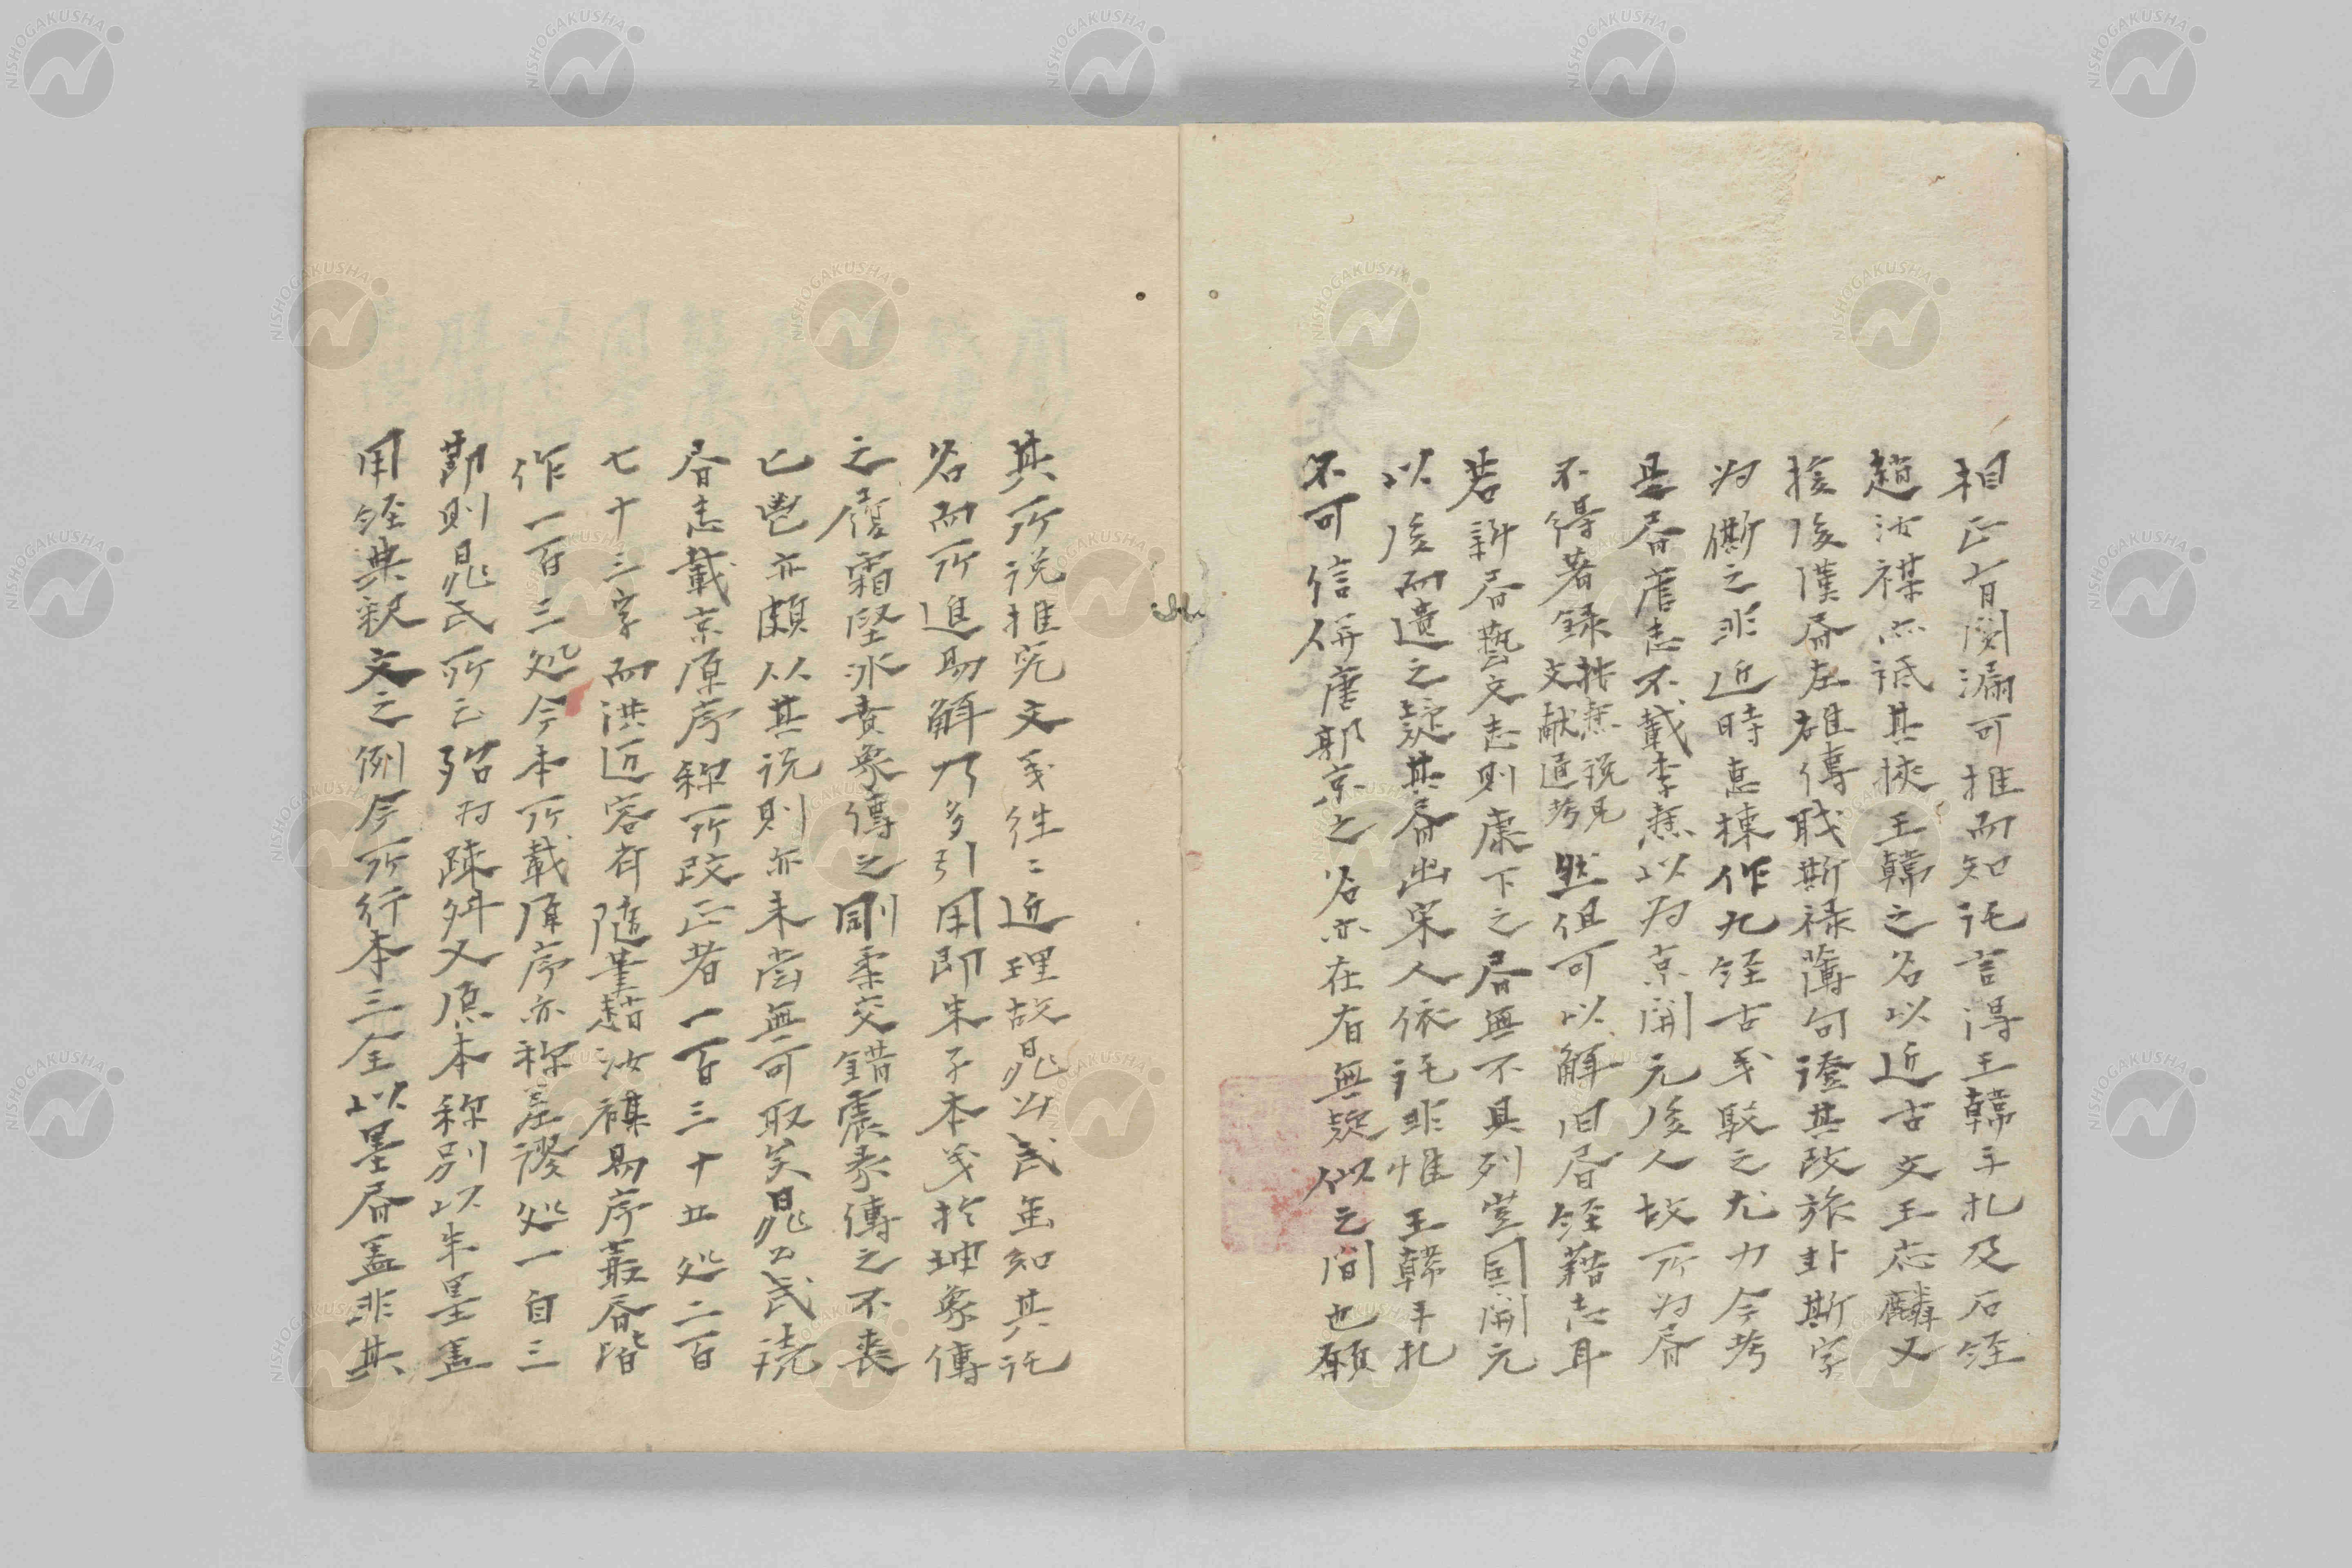 相正有闕漏可推而知託言得王韓手札及石経
趙汝楳亦祗其挾王韓之名以近古文王応麟又
援後漢書左雄傳職斯禄薄句證其改旅卦斯字
为㒋之非近時恵棟作九経古義駁之尤力今考
是書唐志不載李燾以为京開元後人故所为書
不得著録李燾説見文献通考然但可以解旧書経藉志耳
若新書藝文志則唐下之書無不具列豈因開元
以後而遺之疑其書出宋人依託非惟王韓手札
不可信併唐郭京之名亦在有無疑似之間也顧
其所说推究文義徃〻近理故晁公武虽知其託
名而所進易解乃多引用即朱子本義於坤象傳
之履霜堅冰賁象傳之剛柔交錯震彖傳之不喪
匕鬯亦頗以其说則亦未嘗無可取矣晁公武读
書志載京原序称所改正者一百三十五処二百
七十三字而洪迈容斉隨筆趙汝楳易序叢書皆
作一百三処今本所載原序亦称差謬処一百三
節則晁氏所云殆为疎舛又原本称別以朱墨盖
用経典釈文之例今所行本三全以墨書盖非其